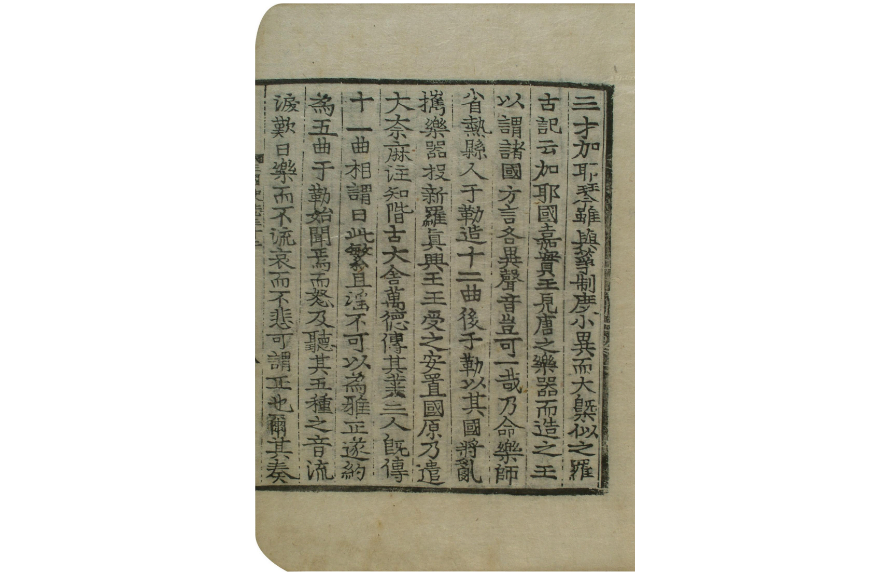 三才加耶琴雖與箏制度小異而大槩似之羅
古記云加耶國嘉實王見唐之樂器而造之王
以謂諸國方言各異聲音豈可一哉乃命樂師
省熱縣人于勒造十二曲後于勒以其國將亂
攜樂器投新羅眞興王王受之安置國原乃遣
大奈麻注知階古大舍萬德傳其業三人旣傳
十一曲相謂曰此繁且淫不可以爲雅正遂約
爲五曲于勒始聞焉而怒及聽其五種之音流
淚歎曰樂而不流哀而不悲可謂正也爾其奏